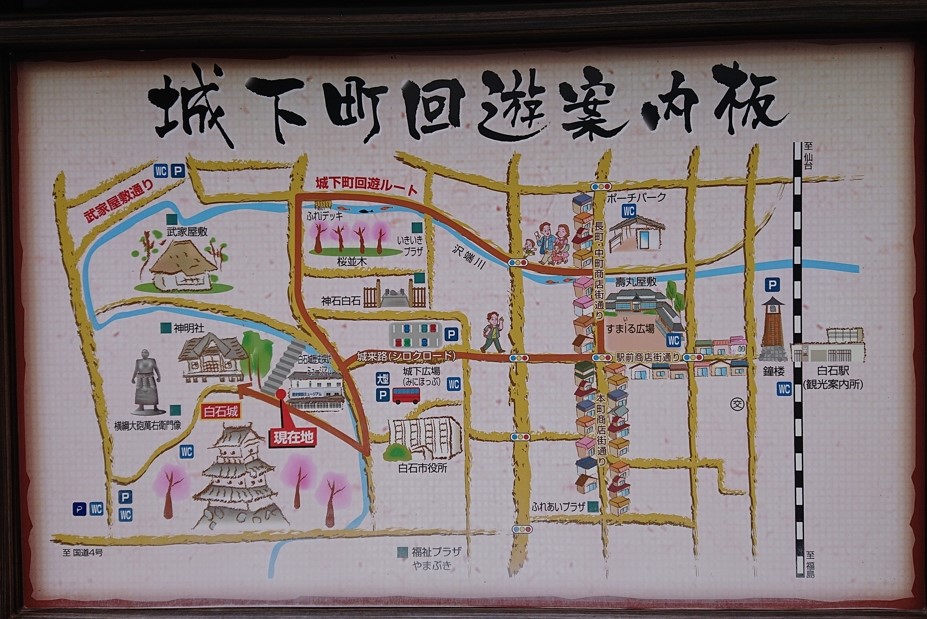 城下町回遊案内板
至仙台
WC P
武家屋敷通り
城下町回遊ルート
ふれデッキ
ポーチパーク
WC
武家屋敷
いきいき
プラザ
桜並木
沢端川
長町・中町商店街通り
壽丸屋敷
すまiる広場
WC
P
神石白石
神明社
P
城来路(シロクロード)
駅前商店街通り
城下広場
(みにぽっぷ)
大型
P
WC
鐘楼
WC
白石駅
(観光案内所)
白石城
現在地
横綱大砲萬右衛門像
交
本町商店街通り
白石市役所
WC
P
WC
P WC
ふれあいプラザ
至 国道4号
福祉プラザ
やまぶき
至福島